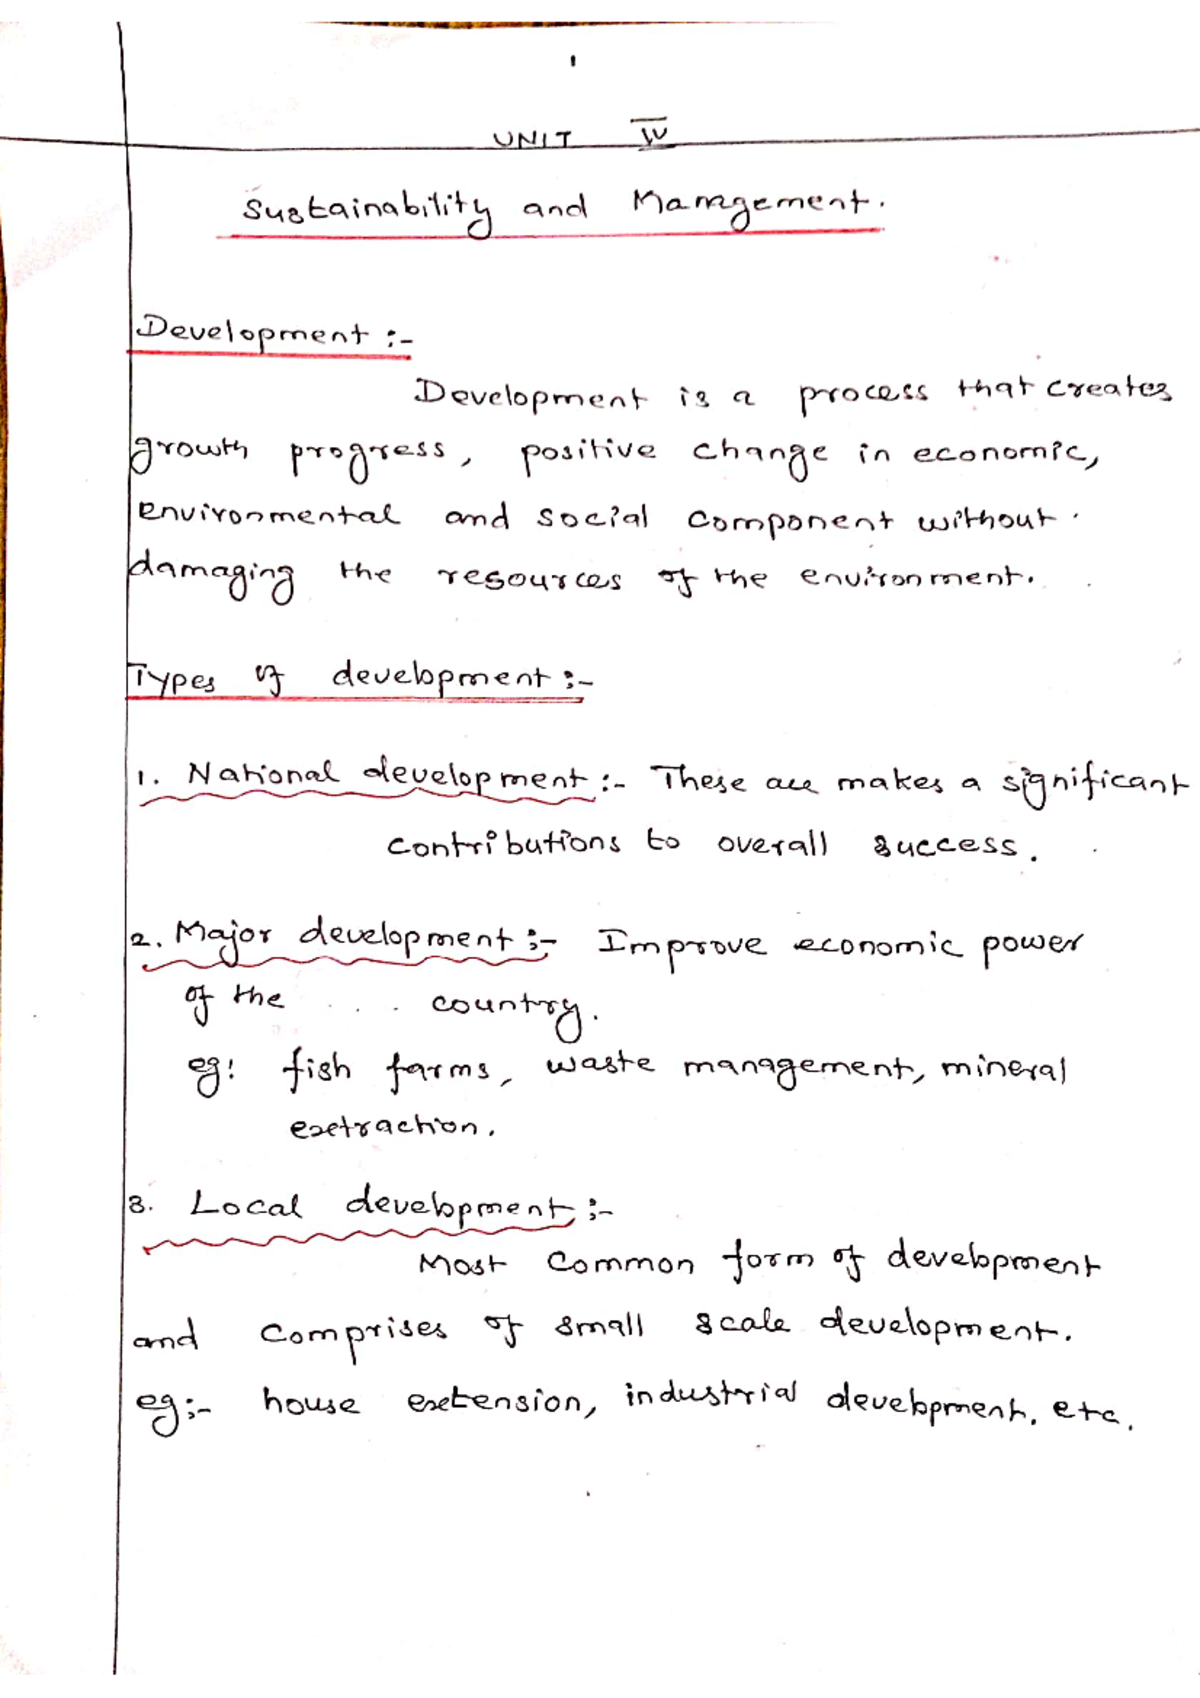 UNIT IV
Sustainability and Management.
Development :-
Development is a process that creates
growth progress, positive change in economic,
environmental and social component without
damaging the resources of the environment.
Types of development :-
1. National development :- These are makes a significant
contributions to overall success.
2. Major development :- Improve economic power
of the . . . country.
eg: fish farms, waste management, mineral
extraction.
3. Local development :-
Most Common form of development
and Comprises of small scale development.
eg:- house extension, industrial development, etc.